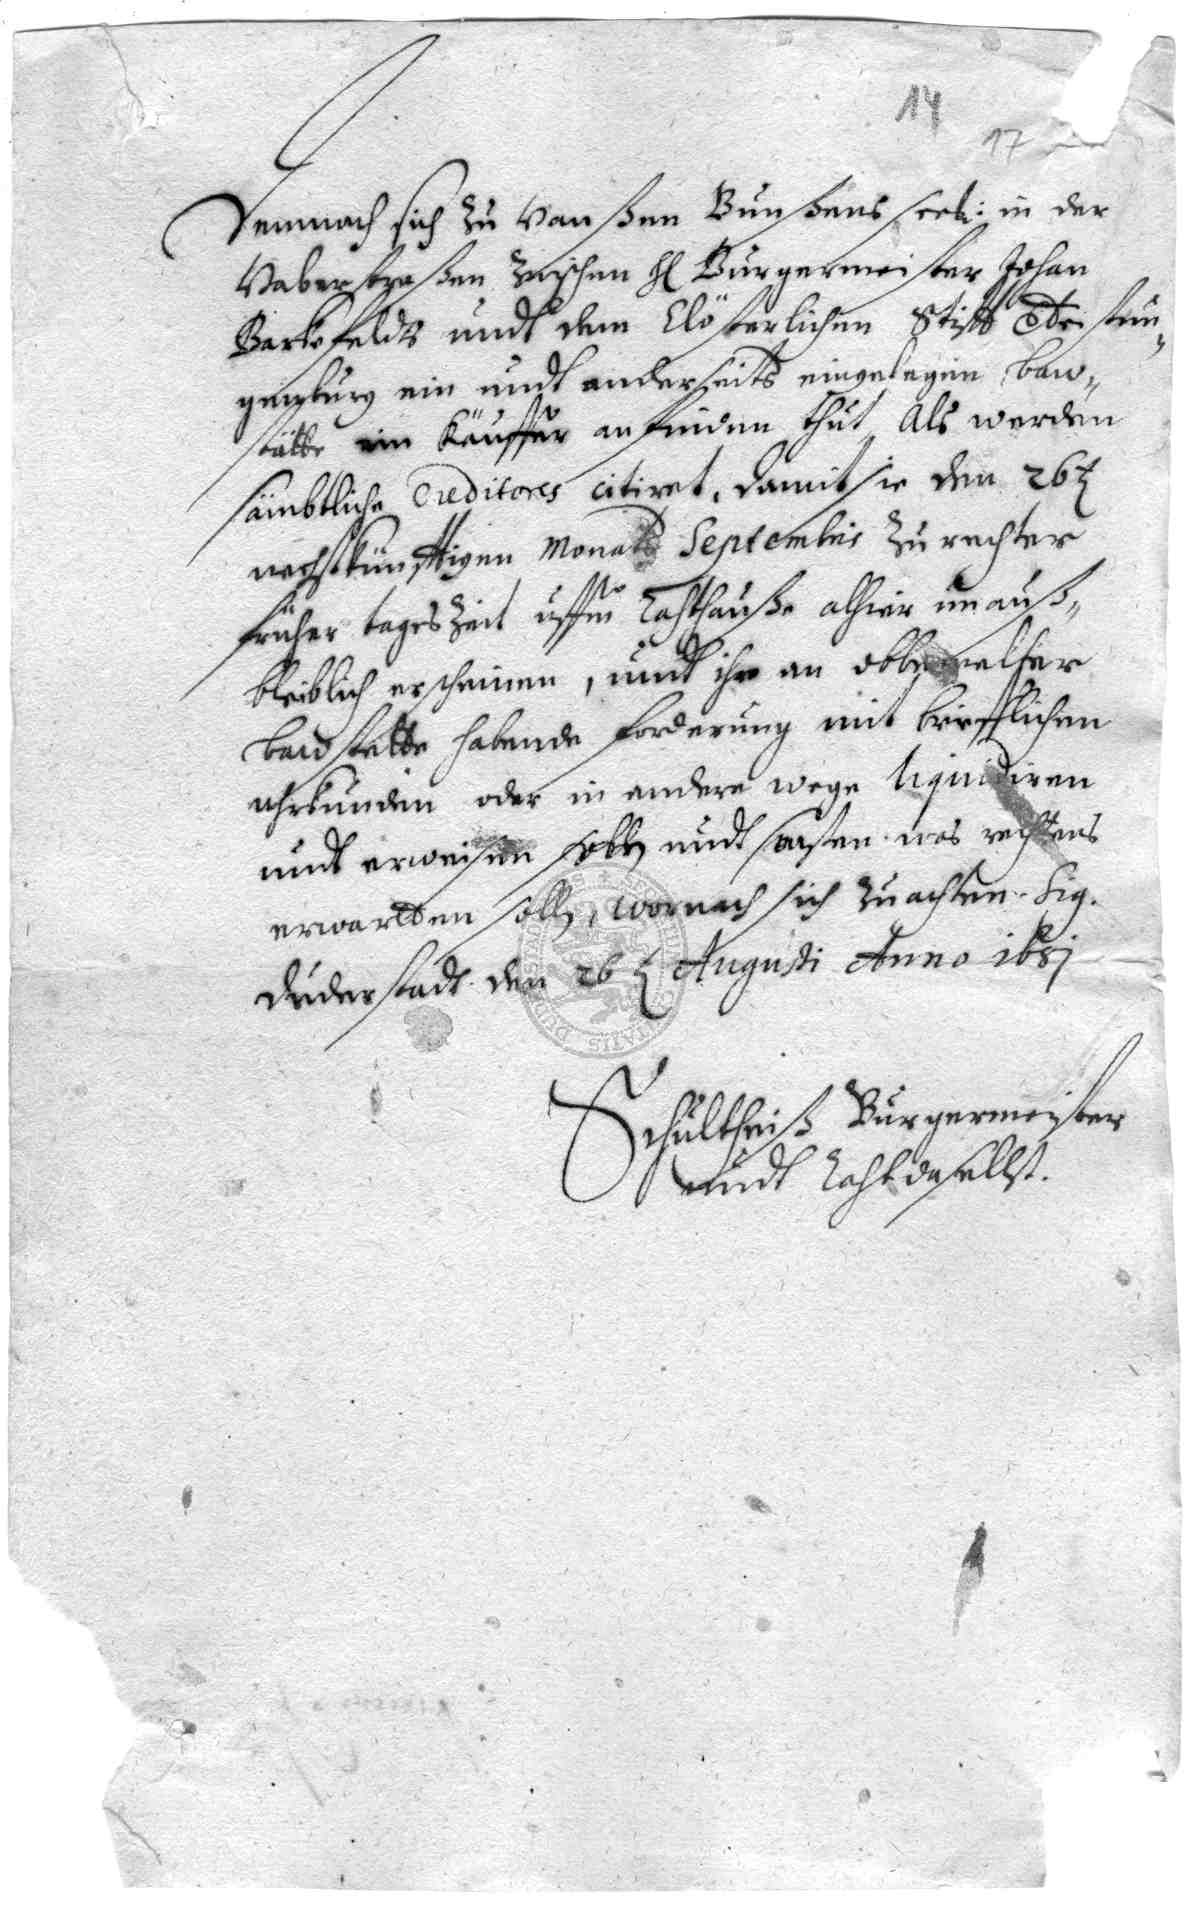 14
17
Demnach sich zu Hansßen Bunßens seel: in der
Haberstraßen zwischen H. Burgermeister Johan
Barkefeldts undt dem Clösterlichen Stifft Teistun„
genburg ein undt anderseits eingelegene baw„
stätte ein Käuffer anfinden thut, Als werden
sämbtliche Creditores citiret, damit sie den 26t
nechstkünfftigen Monats Septembris zu rechter
früher tages Zeit uffm Rahthauße alhier unauß„
bleiblich erscheinen, undt ihre an obbemelter
bawstette habende forderung mit brieflichen
uhrkunden oder in andere wege liquidiren
undt erweisen sollen undt sonsten was rechtens
erwartten sollen, wornach sich zu achten. Sig.
Duderstadt den 26t Augusti Anno 1681
Schultheiß Burgermeister
undt Raht daselbst.